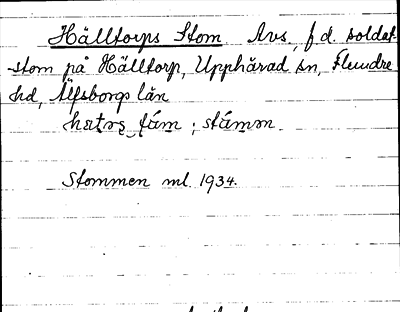 Hälltorps Stom Avs., f.d. soldat-
-stom på Hälltorp, Upphärad sn, Flundre
hd, Älfsborgs län
stámən
Stommen ml. 1934.